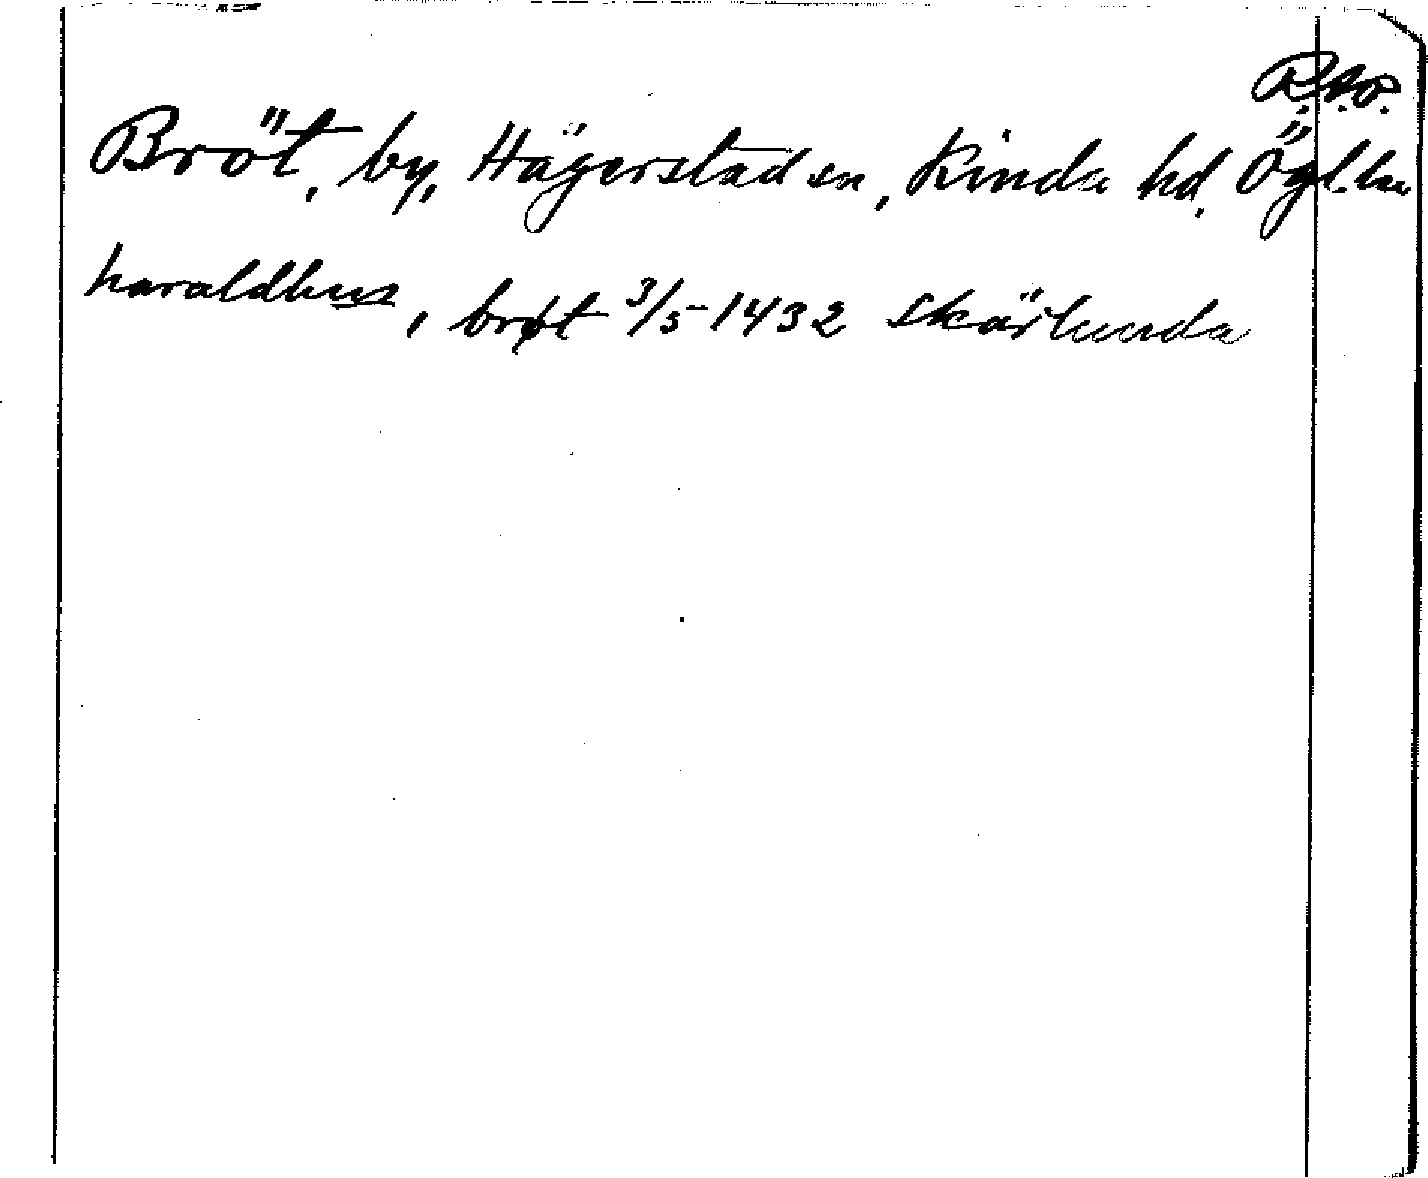 R.A.P.
Bröt, by, Hägerstad sn, Kinda hd. Ögl. län
haraldhus, brøt 3/5 1432 Skärlunda